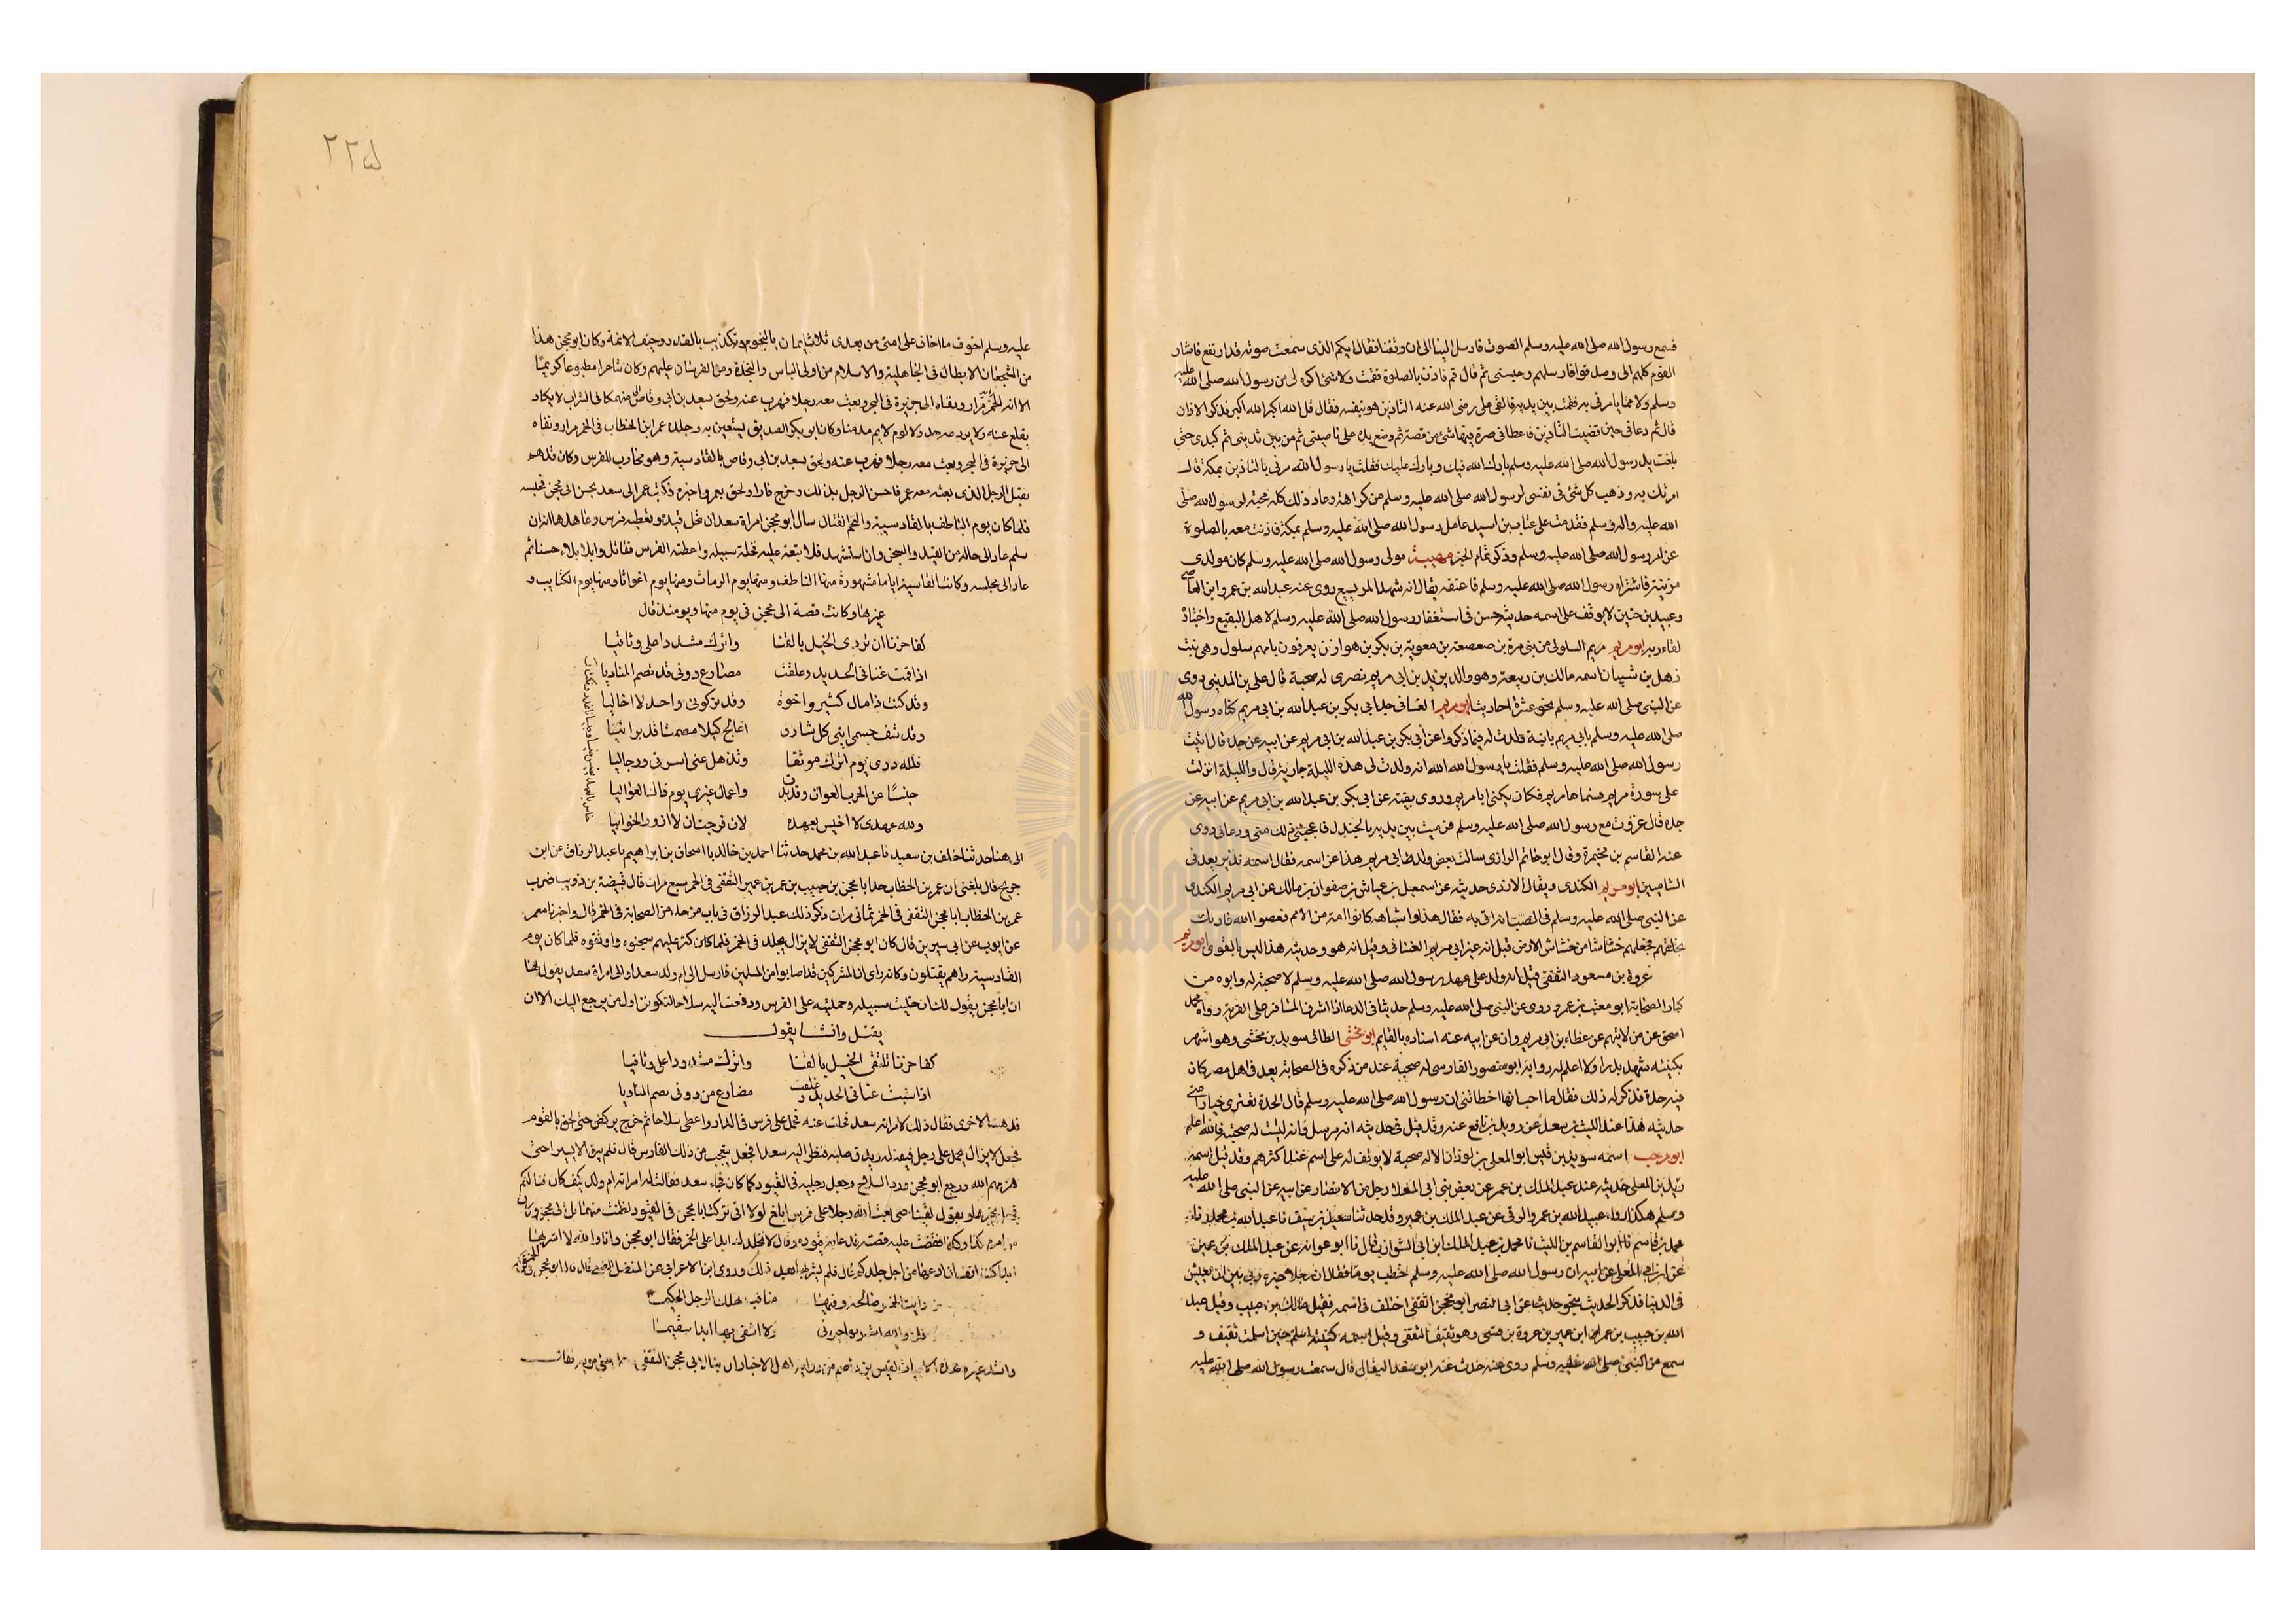 فسمع رسول الله صلى الله عليه وسلم الصوت فارسل الينا الى ان وقفنا فقال ايكم الذى سمعت صوته قد ارتفع فاشار
القوم كلهم الى وصدقوا فارسلهم وحبسنى ثم قال قم فاذن بالصلوة فقمت ولا شئ اكره الى من رسول الله صلى الله عليه
وسلم ولا مما يامرنى به فقمت بين يديه فالقى على رضى الله عنه التاذين هو بنفسه فقال قل الله اكبر الله اكبر فذكر الاذان
قال ثم دعانى حين قضيت التاذين فاعطانى صرة فيها شئ من فضة ثم وضع يده على ناصيتى ثم من بين ثديى ثم كبدى حتى
بلغت يد رسول الله صلى الله عليه وسلم بارك الله فيك وبارك عليك فقلت يا رسول الله مرنى بالتاذين بمكة قال
امرتك به وذهب كل شئ فى نفسى لرسول الله صلى الله عليه وسلم من كراهة وعاد ذلك كله محبة لرسول الله صلى
الله عليه واله وسلم فقدمت على عتاب بن اسيد عامل رسول الله صلى الله عليه وسلم بمكة فاذنت معه بالصلوة
عن امر رسول الله صلى الله عليه وسلم وذكر تمام الخبر مولى رسول الله صلى الله عليه وسلم كان مولدى
مزينة فاشتراه رسول الله صلى الله عليه وسلم فاعتقه يقال انه شهد المريسيع روى عنه عبد الله بن عمرو ابن العاصى
وعبيد بن حنين لا يوقف على اسمه حديثه حسن فى استغفار رسول الله صلى الله عليه وسلم لاهل البقيع واختياره
لقاء ربه ابو مريم السلولى من بنى مرة بن صعصعة بن معوية بن بكر بن هوازن يعرفون بامهم سلول وهى بنت
ذهل بن شيبان اسمه مالك بن ربيعة وهو والد يزيد بن ابى مريم له صحبة قال على بن المدينى روى
عن النبى صلى الله عليه وسلم نحو عشرة احاديث ابو مريم الغسانى جد ابى بكر بن عبد الله بن ابى مريم كناه رسول الله
صلى الله عليه وسلم بابى مريم بابنة ولدت له فيما ذكروا عن ابى بكر بن عبد الله بن ابى مريم عن ابيه عن جده قال اتيت
رسول الله صلى الله عليه وسلم فقلت يا رسول الله انه ولدت لى هذه الليلة جارية قال والليلة انزلت
على سورة مريم فسماها مريم فكان يكنى ابا مريم وروى بقية عن ابى بكر بن عبد الله بن ابى مريم عن ابيه عن
جده قال غزوت مع رسول الله صلى الله عليه وسلم فرميت بين يديه بالجندل فاعجبه ذلك منى ودعا لى روى
عنه القاسم بن مخيمرة وقال ابو حاتم الرازى سالت بعض ولد ابى مريم هذا عن اسمه فقال اسمه نذير يعد فى
الشاميين ابو مريم الكندى ويقال الازدى حديثه عن اسمعيل بن عياش بن صفوان بن مالك عن ابى مريم الكندى
عن النبى صلى الله عليه وسلم فى الضب انه اتى به فقال هذا واشباهه كانوا امة من الامم فعصوا الله
بخلقهم فجعلهم خشاشا من خشاش الارض قيل انه غير ابى مريم الغسانى وقيل انه هو وحديثه هذا ليس بالقوى ابو مريم
عروة بن مسعود الثقفى قيل انه ولد على عهد رسول الله صلى الله عليه وسلم لا صحبة له وابوه من
كبار الصحابة ابو معتب بن عمرو روى عن النبى صلى الله عليه وسلم حديثا فى الدعا اذا اشرف المسافر على القرية رواه محمد
اسحق عن من لا يتهم عن عطاء بن ابى مروان عن ابيه عنه اسناده بالقايم ابو مخشى الطائى سويد بن مخشى وهو اشهر
بكنيته شهد بدرا ولا اعلم له رواية ابو منصور الفارسى له صحبة عند من ذكره فى الصحابة يعد فى اهل مصر كان
فيه حدة فذكر له ذلك فقال ما احب انها اخطاتنى ان رسول الله صلى الله عليه وسلم قال الحدة تعترى خيار امتى
حديثه هذا عند الليث بن سعد عن دويد بن نافع عنه وقد قيل فى حديثه انه مرسل وانه ليست له صحبة فالله اعلم
اسمه سويد بن قيس ابو المعلى بن لوذان له صحبة لا يوقف له على اسم عند اكثرهم وقد قيل اسمه
زيد بن المعلى حديثه عند عبد الملك بن عمير عن بعض بنى ابى المعلا رجل من الانصار عن ابيه عن النبى صلى الله عليه
وسلم هكذا رواه عبيد الله بن عمرو الرقى عن عبد الملك بن عمير وقد حدثنا سعيد بن سيف نا عبد الله بن محمد نا
محمد بن قاسم نا ابو القاسم بن الليث نا محمد بن عبد الملك ابن ابى الشوارب قال نا ابو عوانة عن عبد الملك بن عمير
عن ابن ابى المعلى عن ابيه ان رسول الله صلى الله عليه وسلم خطب يوما فقال ان رجلا خيره ربى بين ان يعيش
فى الدنيا فذكر الحديث نحو حديث عن ابى النضر ابو محجن الثقفى اختلف فى اسمه فقيل مالك بن حبيب وقيل عبد
الله بن حبيب بن عمرو ابن عمير بن عروة بن وهو ثقيف الثقفى وقيل اسمه كنيته اسلم حين اسلمت ثقيف و
سمع من النبى صلى الله عليه وسلم روى عنه حدث عنه ابو سعد البقال قال سمعت رسول الله صلى الله عليه
٢٢٥
عليه وسلم اخوف ما اخاف على امتى من بعدى ثلاث ايمان بالنجوم وتكذيب بالقدر وحيف الائمة وكان ابو محجن هذا
من الشجعان الابطال فى الجاهلية والاسلام من اولى الباس والنجدة ومن الفرسان عليهم وكان شاعرا مطبوعا كريما
الا انه مرارا ونفاه الى جزيرة فى البحر وبعث معه رجلا فهرب عنه ولحق بسعد بن ابى وقاص منهمكا فى الشراب لا يكاد
يقلع عنه ولا يردعه حد ولا لوم لايم وكان ابو بكر الصديق يستعين به وجلده عمر ابن الخطاب فى الخمر مرارا ونفاه
الى جزيرة فى البحر وبعث معه رجلا فهرب عنه ولحق بسعد بن ابى وقاص بالقادسية وهو محارب للفرس وكان قد هم
بقتل الرجل الذى بعثه معه عمر فاحس الرجل بذلك وخرج فارا ولحق بعمر واخبره فكتب عمر الى سعد بحبس ابى محجن فحبسه
فلما كان يوم الناطف بالقادسية والتحم القتال سال ابو محجن امراة سعد ان تحل قيده وتعطيه فرس وعاهدها انه ان
سلم عاد الى حاله من القيد والسجن وان استشهد فلا تبعة عليه فخلت سبيله واعطته الفرس فقاتل وابلا بلاء حسنا ثم
عاد الى مجلسه وكانت القادسية اياما مشهورة منها الناطف ومنها يوم الرماث ومنها يوم اغواثا ومنها يوم الكتايب و
غيرها وكانت قصة ابى محجن فى يوم منها ويومئذ قال
كفا حزنا ان تردى الخيل بالقنا واترك مشددا على وثاقيا
اذا قمت عنانى الحديد وعلقت مصارع دونى قد تصم المناديا
وقد كنت ذا مال كثير واخوة وقد تركونى واحد لا اخا ليا
وقد شف جسمى اننى كل شارق اعالج كبلا مصمتا قد برانيا
فلله درى يوم اترك موثقا وتذهل عنى اسرتى ورجاليا
حبسا عن الحرب العوان وقد بدت واعمال غيرى يوم ذاك العواليا
ولله عهدى لا اخيس بعهده لان فرجت ان لا ازور الخوابيا
الى هنا حدثنا خلف بن سعيد نا عبد الله بن محمد حدثنا احمد بن خالد نا اسحاق بن ابراهيم نا عبد الرزاق عن ابن
جريج قال بلغنى ان عمر بن الخطاب حد ابا محجن بن حبيب بن عمر بن عمير الثقفى فى الخمر سبع مرات قال قبيصة بن ذويب ضرب
عمر بن الخطاب ابا محجن الثقفى فى الخمر ثمانى مرات ذكر ذلك عبد الرزاق فى باب من حد من الصحابة فى الخمر قال واخبرنا معمر
عن ايوب عن ابى سيرين قال كان ابو محجن الثقفى لا يزال يجلد فى الخمر فلما كثر عليهم سجنوه واوثقوه فلما كان يوم
القادسية راهم يقتلون وكانه راى ان المشركين قد اصابوا من المسلمين فارسل الى ام ولد سعد او الى امراة سعد يقول لها
ان ابا محجن يقول لك ان خليت سبيله وحملتيه على الفرس ودفعت اليه سلاحا لتكونن اول من يرجع اليك الا ان
يقتل وانشا يقول
كفا حزنا تلتقى الخيل بالقنا واترك مشدودا على وثاقيا
اذا شئت عنانى الحديد وغلقت مصارع من دونى تصم المناديا
فذهبت الاخرى فقال ذلك لامراة سعد فحلت عنه فحمل على فرس فى الدار واعطى سلاحا ثم خرج يركض حتى لحق بالقوم
فجعل لا يزال يحمل على رجل فيقتله ويدق صلبه فنظر اليه سعد فجعل يتعجب من ذلك الفارس قال فلم يلبثوا الا يسيرا حتى
هزمهم الله ورجع ابو محجن ورد السلاح وجعل رجليه فى القيود كما كان فجاء سعد فقالت له امراته ام ولد كيف كان قتالكم
فجعل يخبرها ويقول لقينا حتى بعث الله رجلا على فرس ابلغ لولا انى تركت ابا محجن فى القيود لظننت
فقصت عليه قصته فدعا به قيوده وقال لا نجلدك ابدا على الخمر فقال ابو محجن وانا والله لا اشربها
ابدا كنت انف ان ادعها من اجل جلدكم قال فلم يشربها بعد ذلك وروى ابن الاعرابى عن المفضل قال قال ابو محجن
رايت الخمر صالحة وفيها مناقب تهلك الرجل الحكيما
فلا والله اشربها حيوتى ولا اشفى بها ابدا سقيما